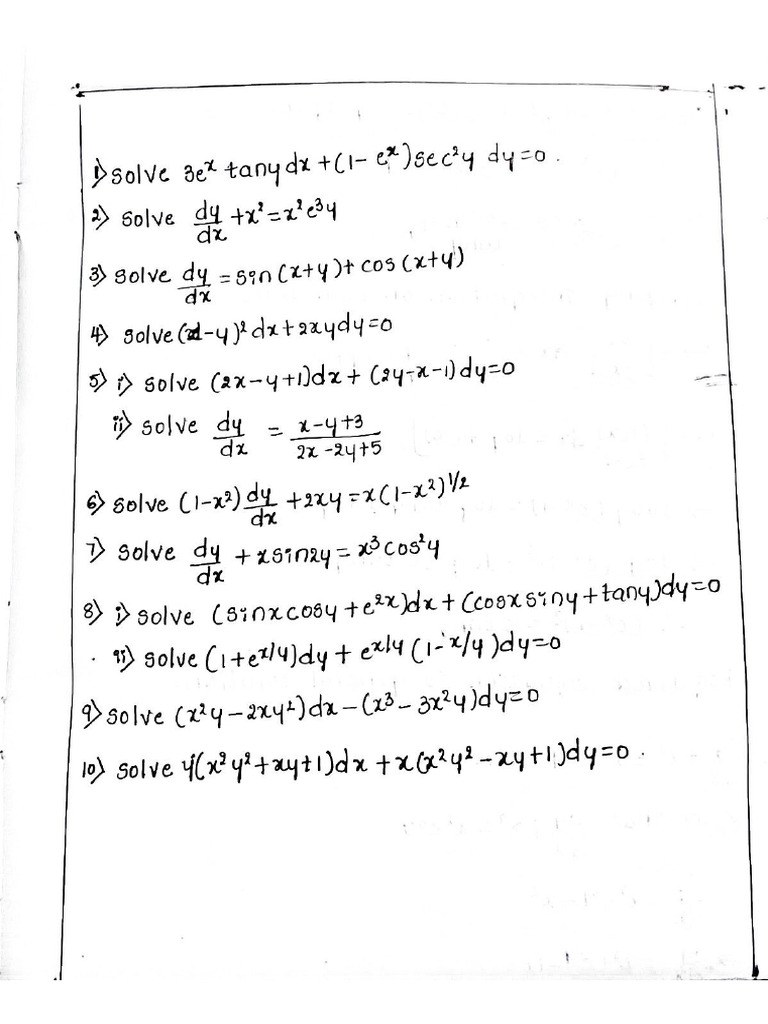 1) Solve 3eˣ tany dx + (1 - eˣ) sec²y dy=0.
2) Solve dy/dx + x² = x²e³y
3) Solve dy/dx = sin(x+y) + cos(x+y)
4) Solve (x-y)² dx + 2xy dy=0
5) i) Solve (2x-y+1)dx + (2y-x-1)dy=0
ii) Solve dy/dx = x-y+3/2x-2y+5
6) Solve (1-x²) dy/dx + 2xy = x(1-x²)^1/2
7) Solve dy/dx + x sin2y = x³cos²y
8) i) Solve (sinx cosy + e²ˣ)dx + (cosx siny + tany)dy=0
ii) Solve (1+e^x/y)dy + e^x/y (1-x/y)dy=0
9) Solve (x²y - 2xy²)dx - (x³ - 3x²y)dy=0
10) Solve y(x²y²+xy+1)dx + x(x²y²-xy+1)dy=0.